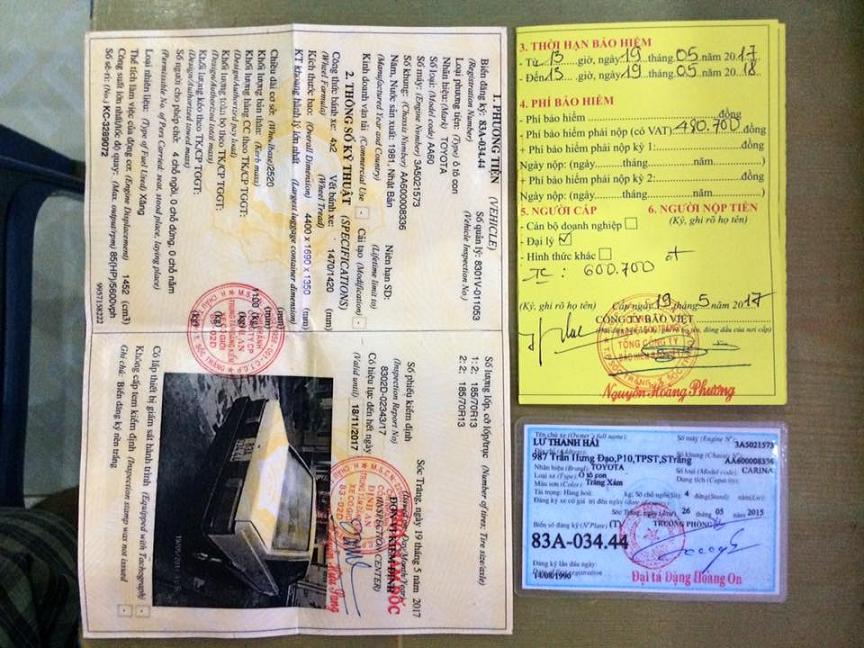 1. PHƯƠNG TIỆN (VEHICLE)
Biển đăng ký: 83A-034.44
(Registration Number)
Số quản lý: 8301V-011053
(Vehicle Inspection No.)
Loại phương tiện: (Type) Ô tô con
Nhãn hiệu: (Mark) TOYOTA
Số loại: (Model code) AA60
Số máy: (Engine Number) 3A5021573
Số khung: (Chassis Number) AA600008336
Năm, Nước sản xuất: 1981, Nhật Bản
Niên hạn SD:
(Manufactured Year and Country)
(Lifetime limit to)
Kinh doanh vận tải: (Commercial Use)
Cải tạo (Modification)
2. THÔNG SỐ KỸ THUẬT (SPECIFICATIONS)
Công thức bánh xe: 4x2 Vết bánh xe: 1470/1420 (mm)
(Wheel Formula) (Wheel Tread)
Kích thước bao: (Overall Dimension) 4400 x 1690 x 1350 (mm)
KT khoang hành lý lớn nhất (Largest luggage container dimension)
(mm)
Chiều dài cơ sở: (Wheelbase) 2520 (mm)
Khối lượng bản thân: (Kerb mass) 1100 (kg)
Khối lượng hàng CC theo TK/CP TGGT:
(Design/Authorized pay load)
Khối lượng toàn bộ theo TK/CP TGGT:
(Design/Authorized total mass)
Khối lượng kéo theo TK/CP TGGT:
(Design/Authorized towed mass)
Số người cho phép chở: 4 chỗ ngồi, 0 chỗ đứng, 0 chỗ nằm
(Permissible No. of Pers Carried: seat, stood place, laying place)
Loại nhiên liệu: (Type of Fuel Used) Xăng
Thể tích làm việc của động cơ: (Engine Displacement) 1452 (cm3)
Công suất lớn nhất/tốc độ quay: (Max. output/rpm) 85(HP)/5600vph
Số sê-ri: (No.) KC-3289072
Số lượng lốp, cỡ lốp/trục (Number of tires: Tire size/axle)
1: 2: 185/70R13
2: 2: 185/70R13
Số phiếu kiểm định
(Inspection Report No)
8302D-02343/17
Có hiệu lực đến hết ngày
(Valid until) 18/11/2017
Sóc Trăng, ngày 19 tháng 5 năm 2017
(INSPECTION CENTER)
Có lắp thiết bị giám sát hành trình (Equipped with Tachograph)
Không cấp tem kiểm định (Inspection stamp was not issued)
Ghi chú: Biển đăng ký nền trắng
3. THỜI HẠN BẢO HIỂM
- Từ 13 giờ, ngày 19 tháng 05 năm 2017
- Đến 13 giờ, ngày 19 tháng 05 năm 2018
4. PHÍ BẢO HIỂM
- Phí bảo hiểm đồng
- Phí bảo hiểm phải nộp (có VAT): 480.700 đồng
+ Phí bảo hiểm phải nộp kỳ 1: đồng
Ngày nộp: (ngày tháng năm )
+ Phí bảo hiểm phải nộp kỳ 2: đồng
Ngày nộp: (ngày tháng năm )
5. NGƯỜI CẤP 6. NGƯỜI NỘP TIỀN
- Cán bộ doanh nghiệp (Ký, ghi rõ họ tên)
- Đại lý
- Hình thức khác
TC: 600.700 đ
(Ký, ghi rõ họ tên) Cấp ngày 19 tháng 5 năm 2017
CÔNG TY BẢO VIỆT
TỔNG CÔNG TY
Nguyễn Hoàng Phương
Tên chủ xe (Owner's full name): Số máy (Engine N°):
LƯ THANH HẢI 3A5021573
987 Trần Hưng Đạo,P10,TPST,STrăng AA600008336
Nhãn hiệu (Brand): TOYOTA Số loại (Model code): CARINA
Loại xe (Type): Ô tô con Dung tích (Capacity):
Màu sơn (Color): Trắng Xám
Tải trọng: Hàng hoá: kg; Số chỗ ngồi
26 05 2015
TRƯỞNG PHÒNG
Biển số đăng ký (N° Plate) (T)
83A-034.44
Đăng ký lần đầu ngày
14/08/1990
Đại tá Đặng Hoàng On